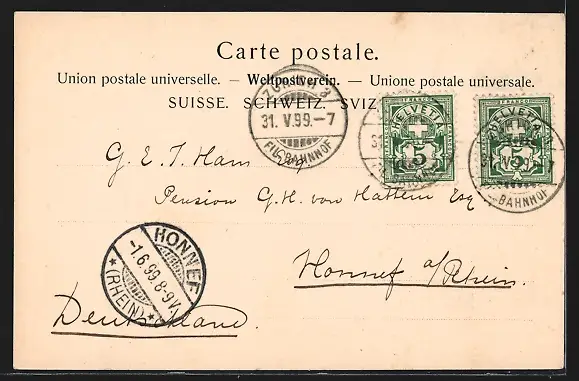 Carte postale.
Union postale universelle. — Weltpostverein. — Unione postale universale.
SUISSE. SCHWEIZ. SVIZ
ZÜRICH
31. V. 99. – 7
FIL. BAHNHOF
FRANCO
HELVETIA
5
FRANCO
HELVETIA
5
BAHNHOF
G. E. T. Ham Esq.
Pension G. H. von Hattem Esq
HONNEF
-1.6.99.8-9V.
*(RHEIN)*
Honnef a/Rhein.
Deutschland.